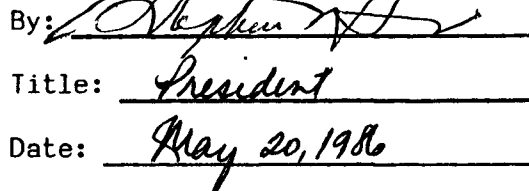 By: Stephen
Title: President
Date: May 20, 1986